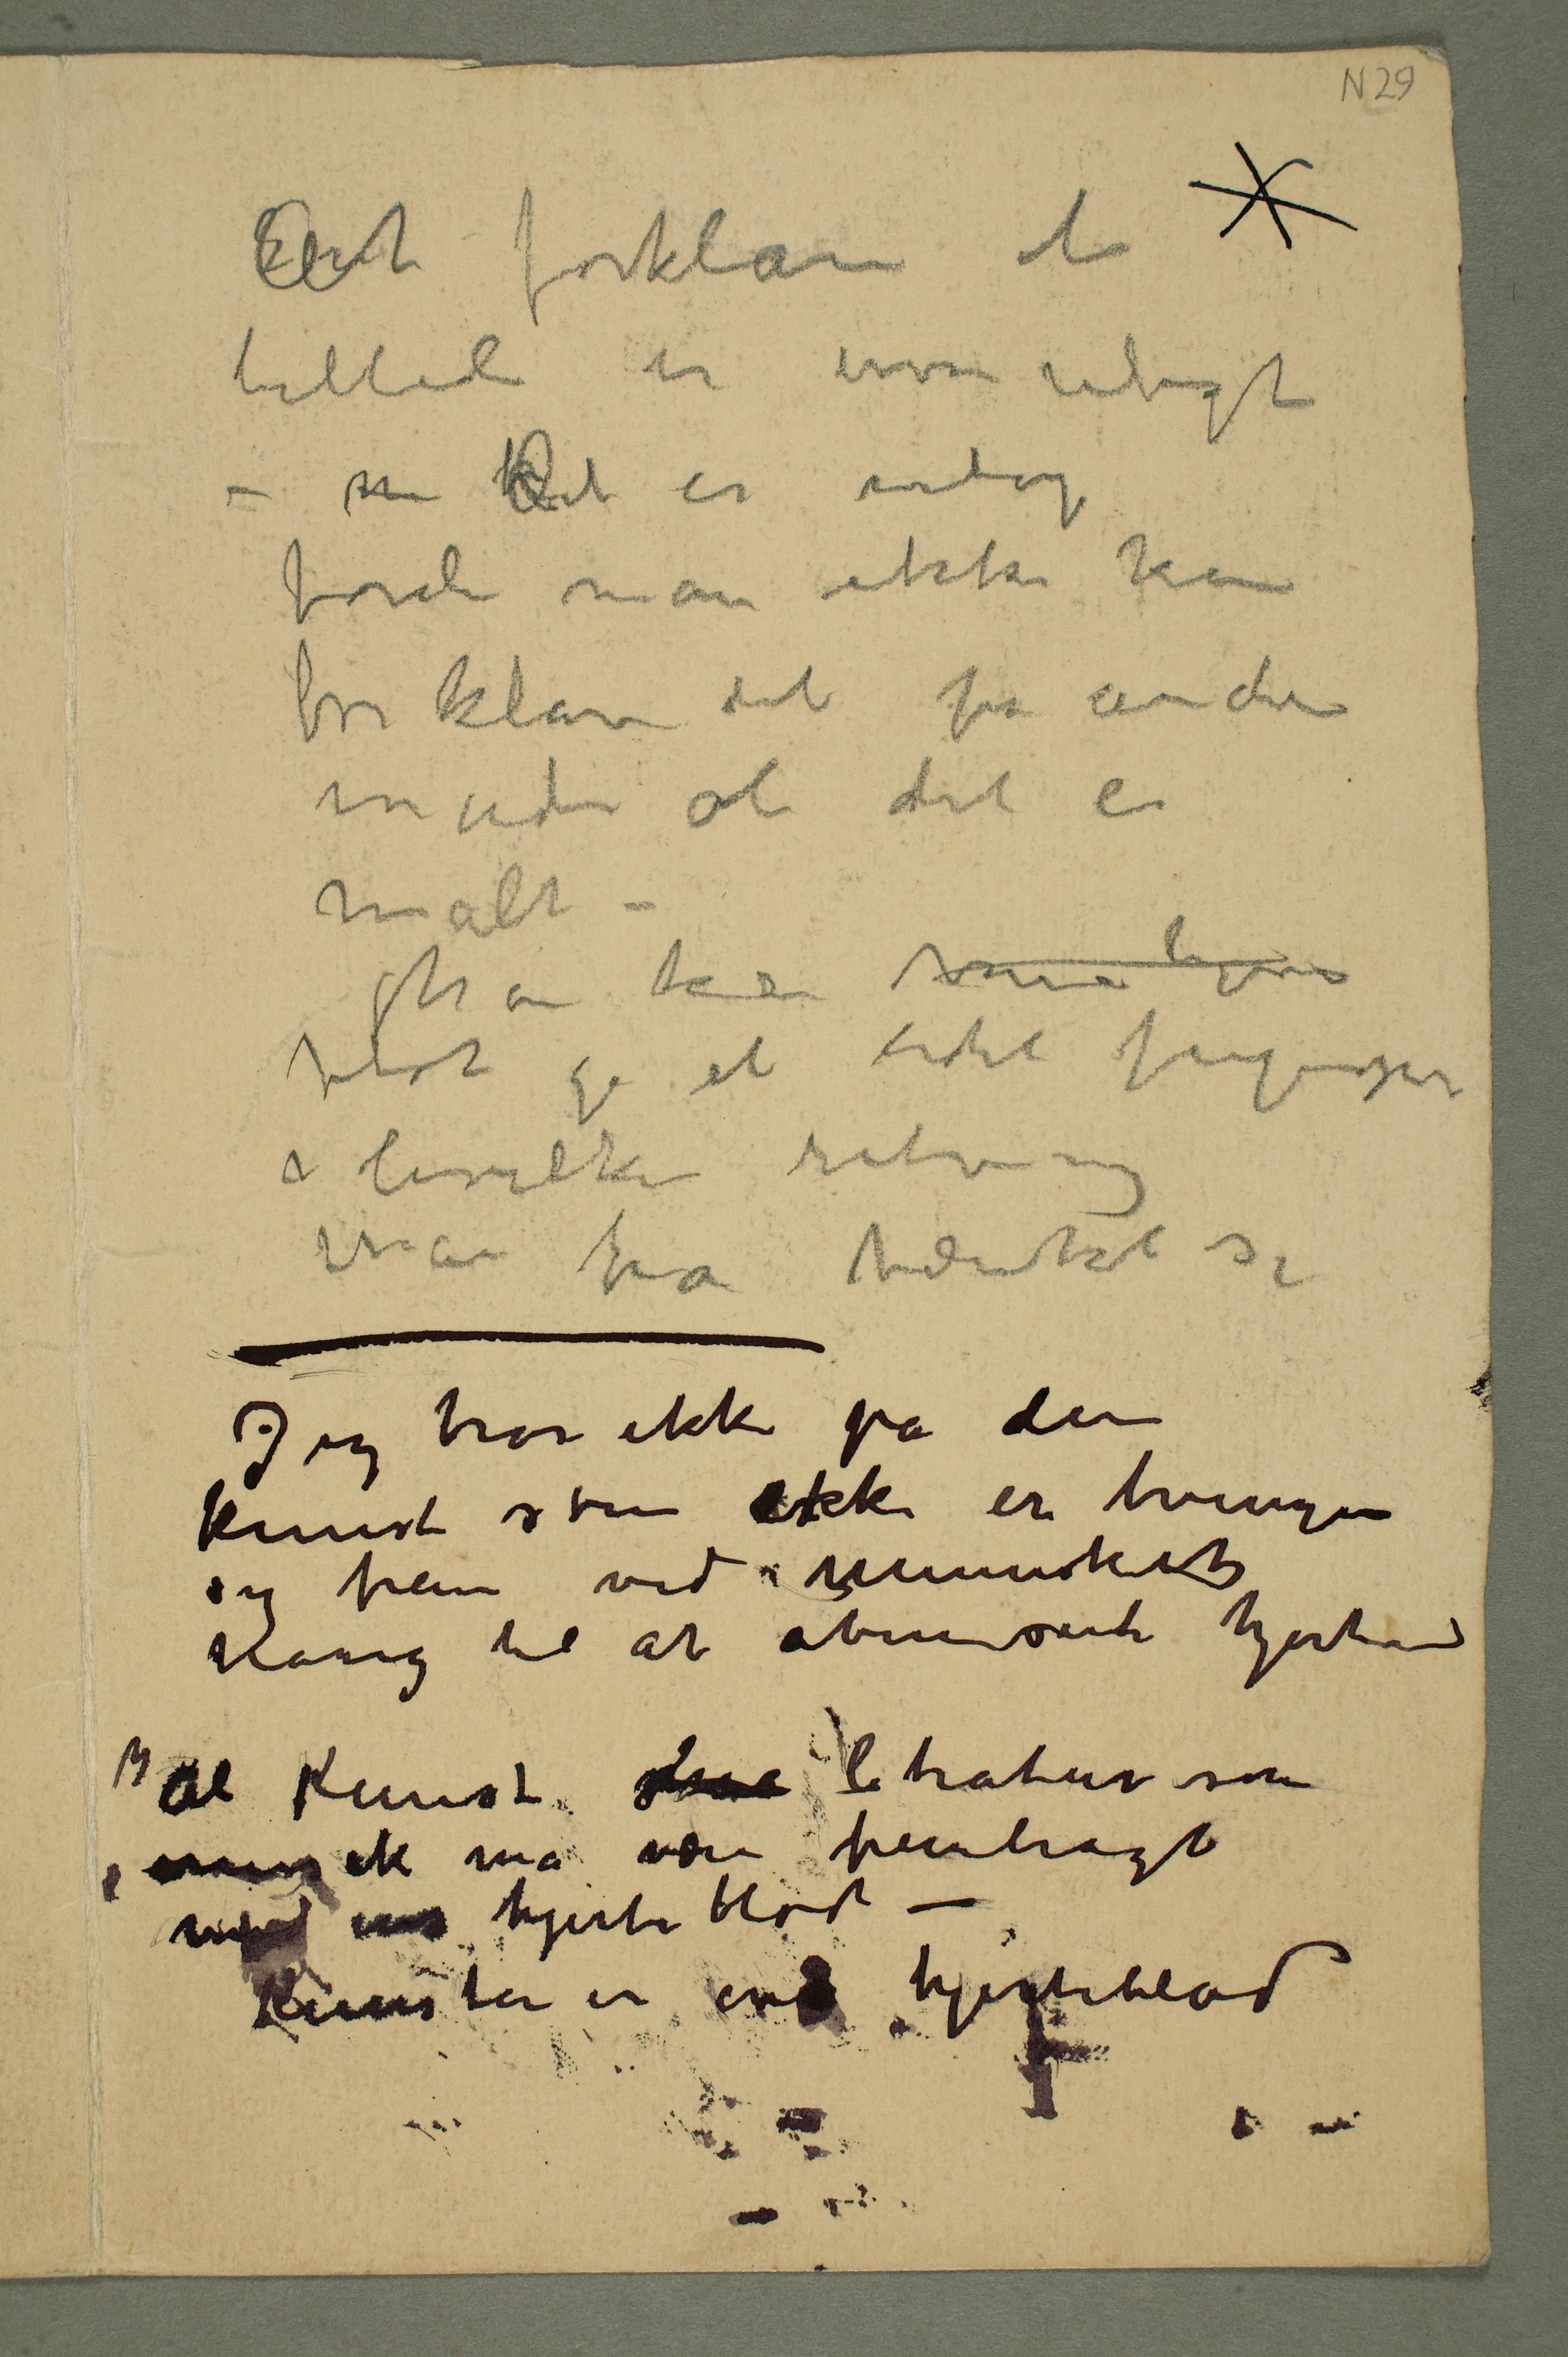 N 29
At forklare et
billede er umuligt
– Det er netop
fordi man ikke kan
forklare det på anden
måde at det er
malt –
Man kan
blot gi et lidet fingerpeg
i hvilken retning
man har tænkt sig
Jeg tror ikke på den
kunst som ikke er tvungen
sig frem ved menneskets
trang til at åbne sit hjerte
Al Kunst literatur som
musik må være frembragt
med ens hjerteblod –
Kunsten er ens hjerteblod